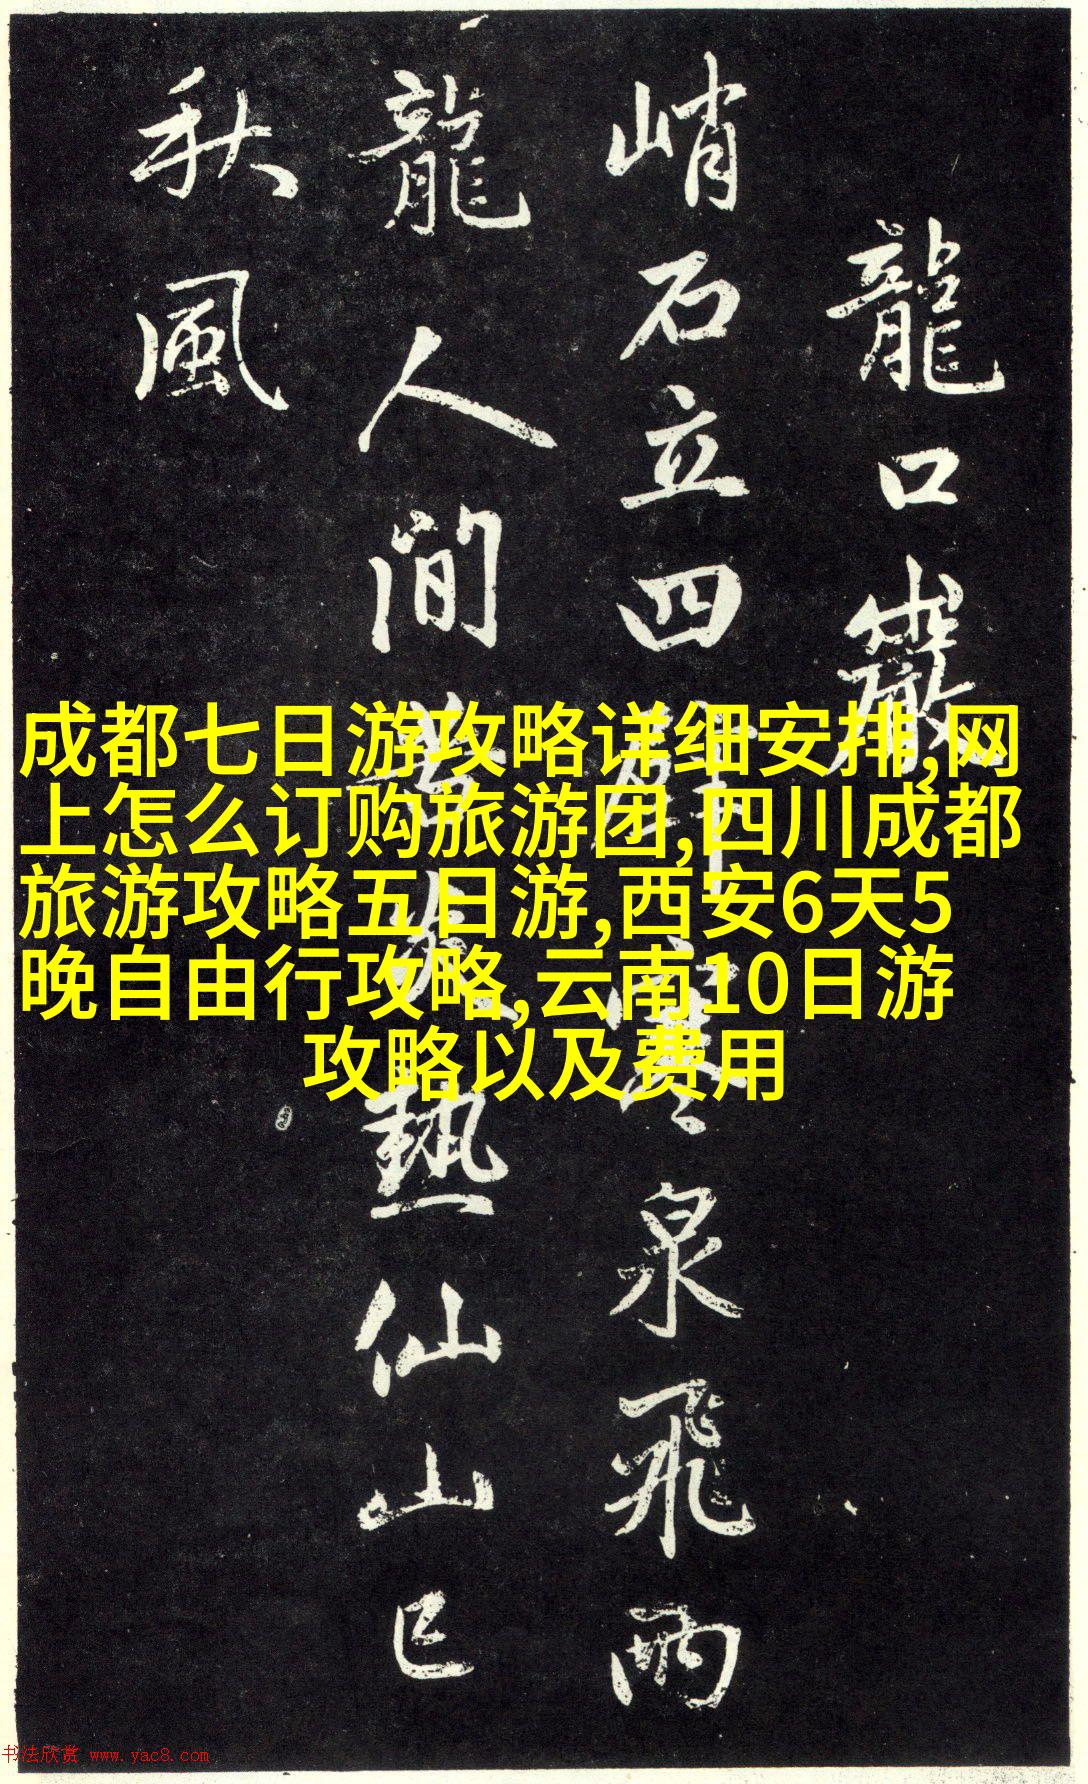 龍口巖
峭石立四壁寒泉飛雨
龍人間苦炎熱仙山已
秋風
成都七日游攻略详细安排,网
上怎么订购旅游团,四川成都
旅游攻略五日游,西安6天5
晚自由行攻略,云南10日游
攻略以及费用
书法欣赏 www.yac8.com